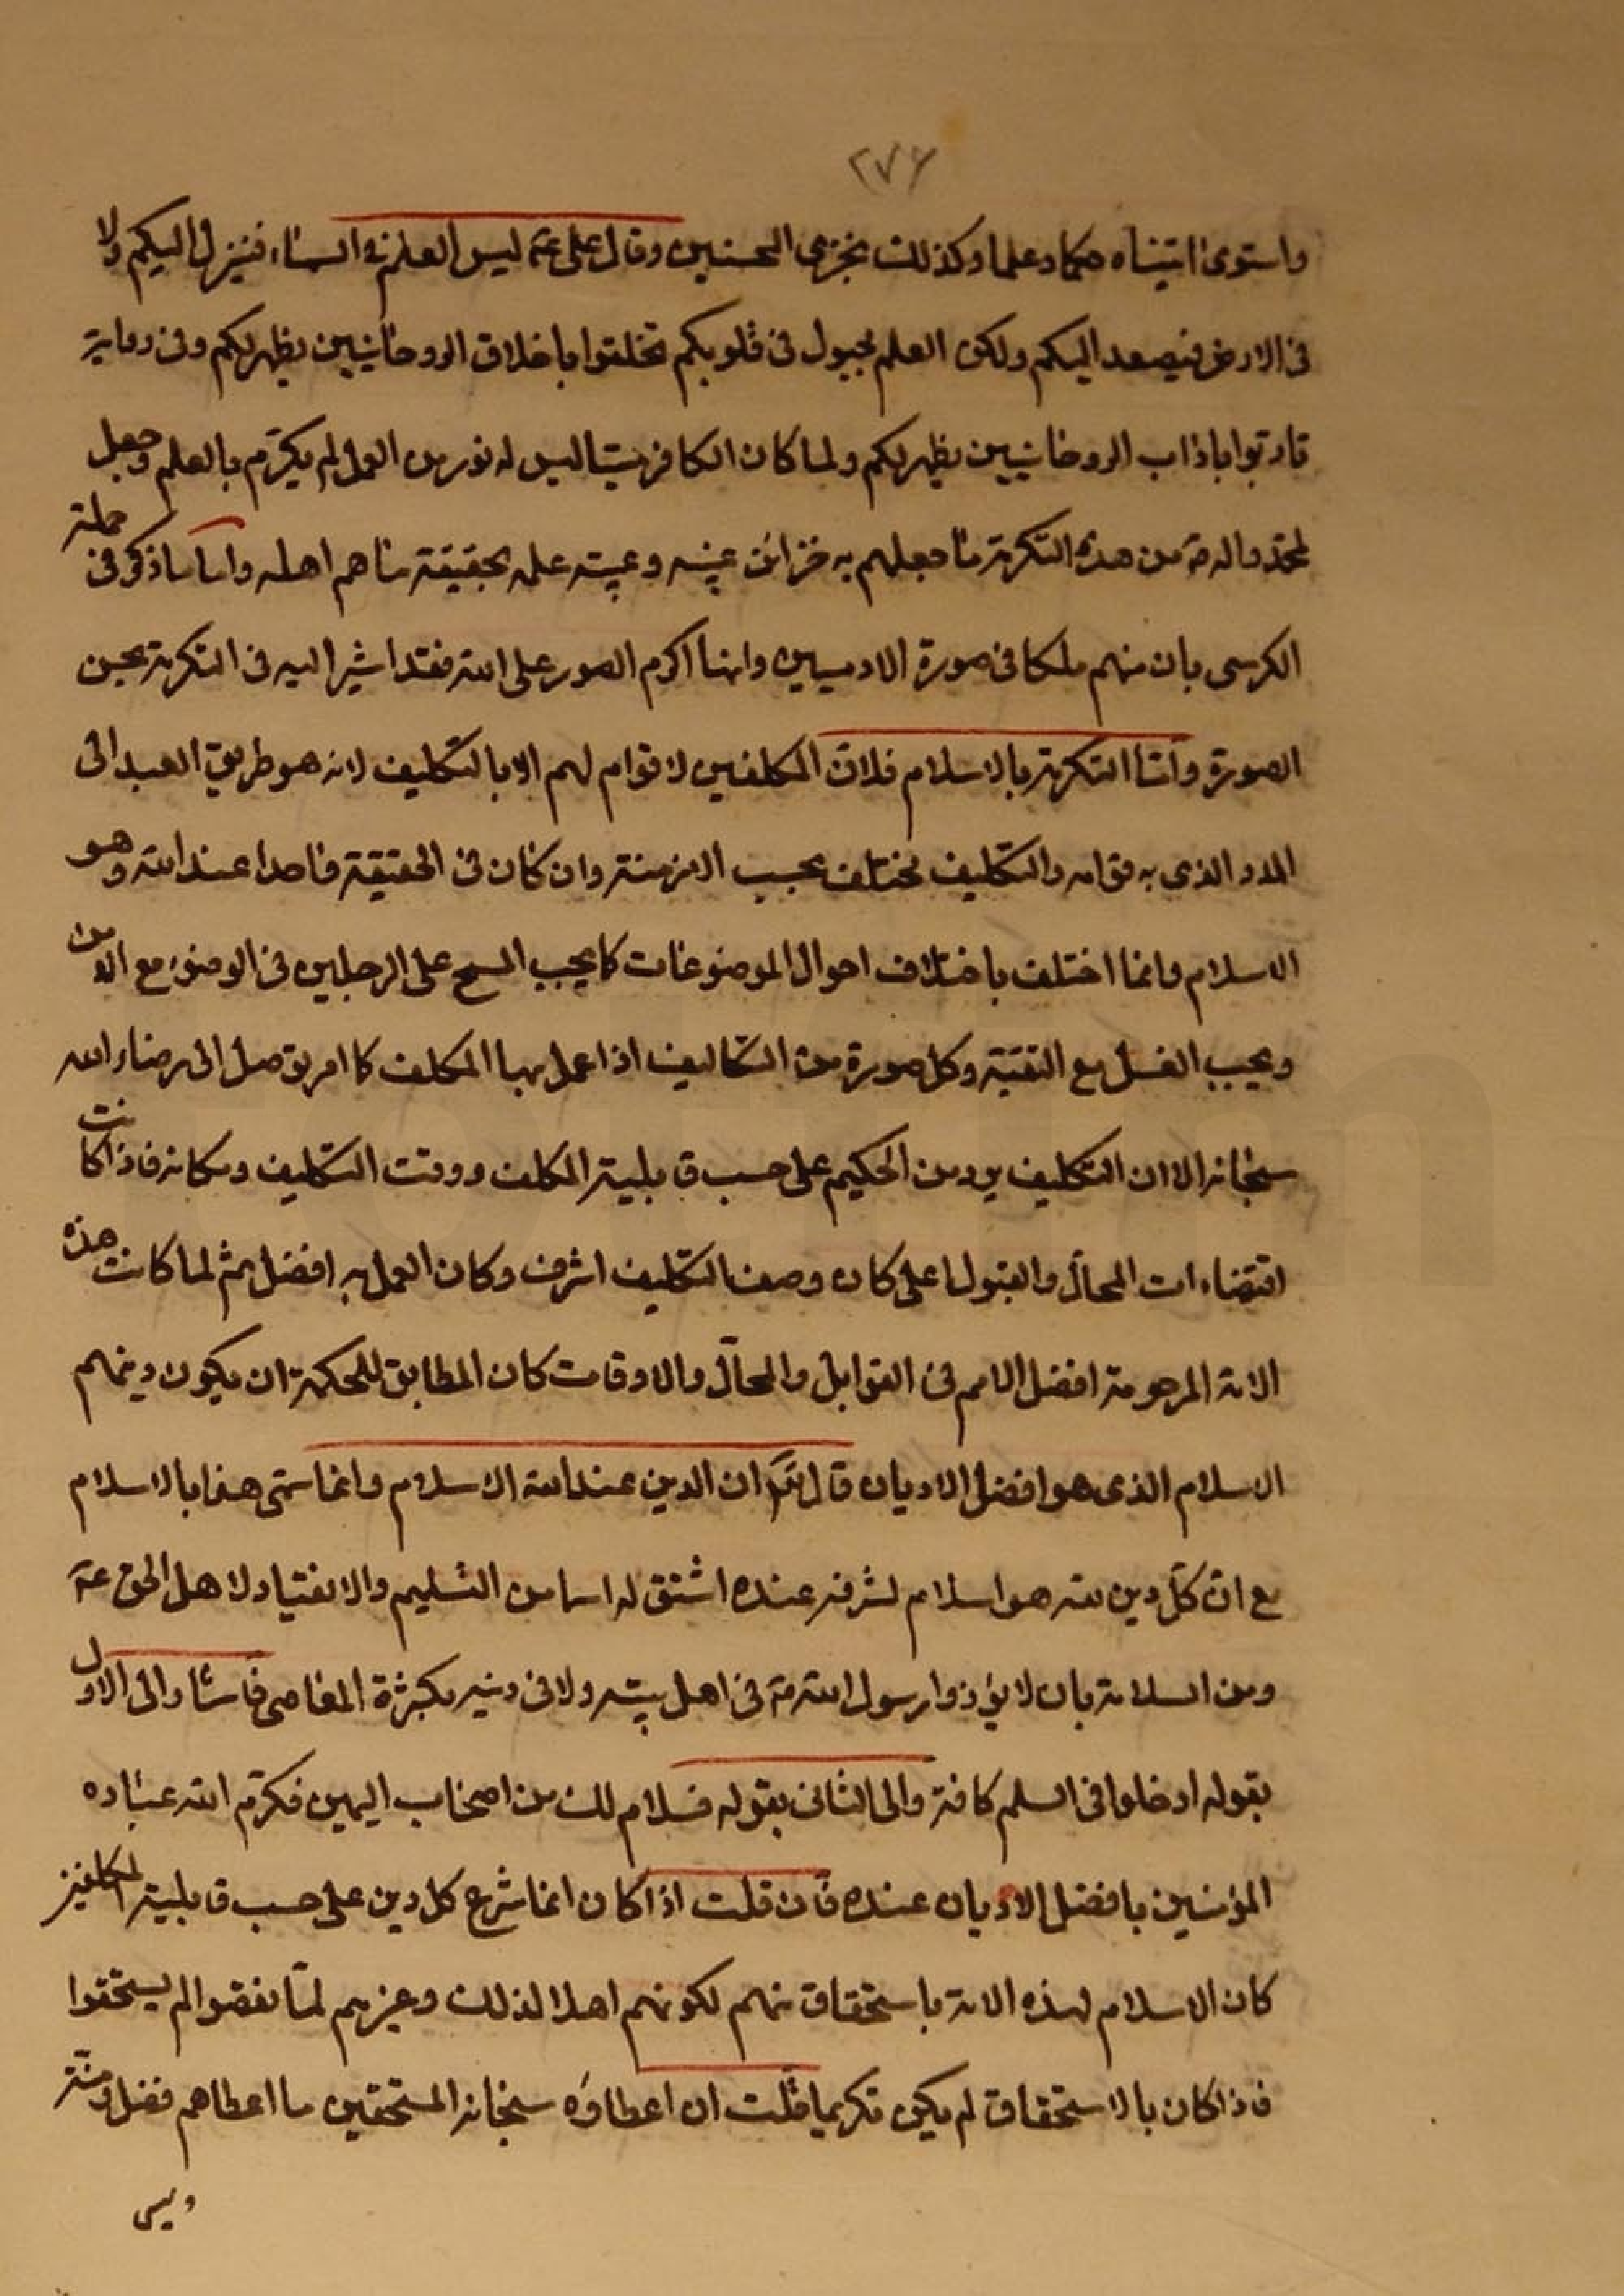 ٢٧۶
واستوى اتيناه حكما وعلما وكذلك نجزى المحسنين وقال على عم ليس العلم فى السماء فينزل اليكم ولا
فى الارض فيصعد اليكم ولكن العلم مجبول فى قلوبكم تخلقوا باخلاق الروحانيين يظهر لكم وفى رواية
تادبوا باداب الروحانيين يظهر لكم ولما كان الكافر ميتا ليس له نور من العمل لم يكرم بالعلم وجعل
لمحمد واله ص من هذه التكرمة ما جعلهم به خزائن غيبه وعيبة علمه بحقيقة ما هم اهله واما ما ذكر فى حملة
الكرسى بان منهم ملكا فى صورة الادميين وانها اكرم الصور على الله فقد اشير اليه فى التكرمة بحسن
الصورة وامّا التكرمة بالاسلام فلانّ المكلفين لا قوام لهم الا بالتكليف لانه هو طريق العبد الى
المدد الذى به قوامه والتكليف يختلف بحسب الازمنة وان كان فى الحقيقة واحدا عند الله وهو
الاسلام وانما اختلف باختلاف احوال الموضوعات كما يجب المسح على الرجلين فى الوضوء مع الامن
ويجب الغسل مع التقية وكل صورة من التكاليف اذا عمل بها المكلف كما امر توصل الى رضاء الله
سبحانه الا ان التكليف يرد من الحكيم على حسب قابلية المكلف ووقت التكليف ومكانه فاذا كانت
اقتضاءات المحالّ والقبول اعلى كان وصف التكليف اشرف وكان العمل به افضل ثم لما كانت هذه
الامة المرحومة افضل الامم فى القوابل والمحالّ والاوقات كان المطابق للحكمة ان يكون دينهم
الاسلام الذى هو افضل الاديان قال الله ان الدين عند الله الاسلام وانما سمّى هذا بالاسلام
مع انّ كلّ دين لله هو اسلام لشرفه عنده اشتق له اسما من التسليم والانقياد لاهل الحق ع
ومن السلامة بان لا يؤذوا رسول الله ص فى اهل بيته ولا فى دينه بكثرة المعاصى فاشار الى الاول
بقوله ادخلوا فى السلم كافة والى الثانى بقوله فسلام لك من اصحاب اليمين فكرّم الله عباده
المؤمنين بافضل الاديان عنده فان قلت اذا كان انما شرع كل دين على حسب قابلية المكلفين
كان الاسلام لهذه الامة باستحقاق منهم لكونهم اهلا لذلك وغيرهم لمّا نقصوا لم يستحقوا
فاذا كان بالاستحقاق لم يكن تكريما قلت ان اعطاؤه سبحانه المستحقين ما اعطاهم فضل ومنّة
وليس